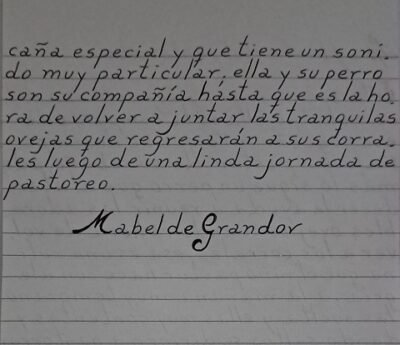 caña especial y que tiene un soni.
do muy particular, ella y su perro
son su compañía hásta que és la ho.
ra de volver a juntar las tranquilas
ovejas que regresarán a sus corra.
les luego de una linda jornada de
pastoreo.
Mabel de Grandov